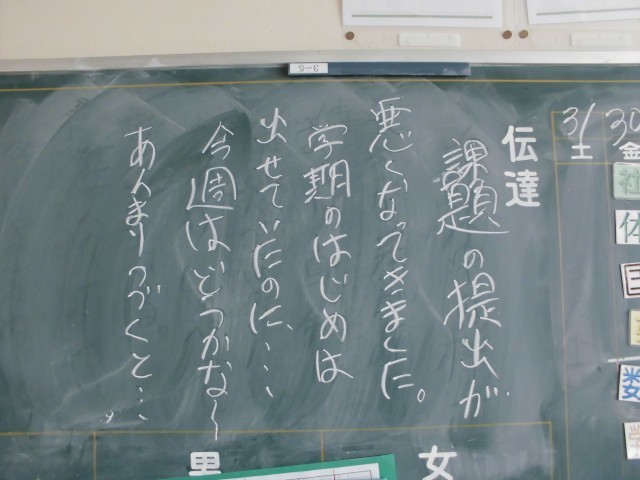 伝達
課題の提出が
悪くなってきました。
学期のはじめは
出せていたのに、・・・
今週はどうかな〜
あんまりつづくと・・・
31
土
30
金
社
体
日
数
男
女